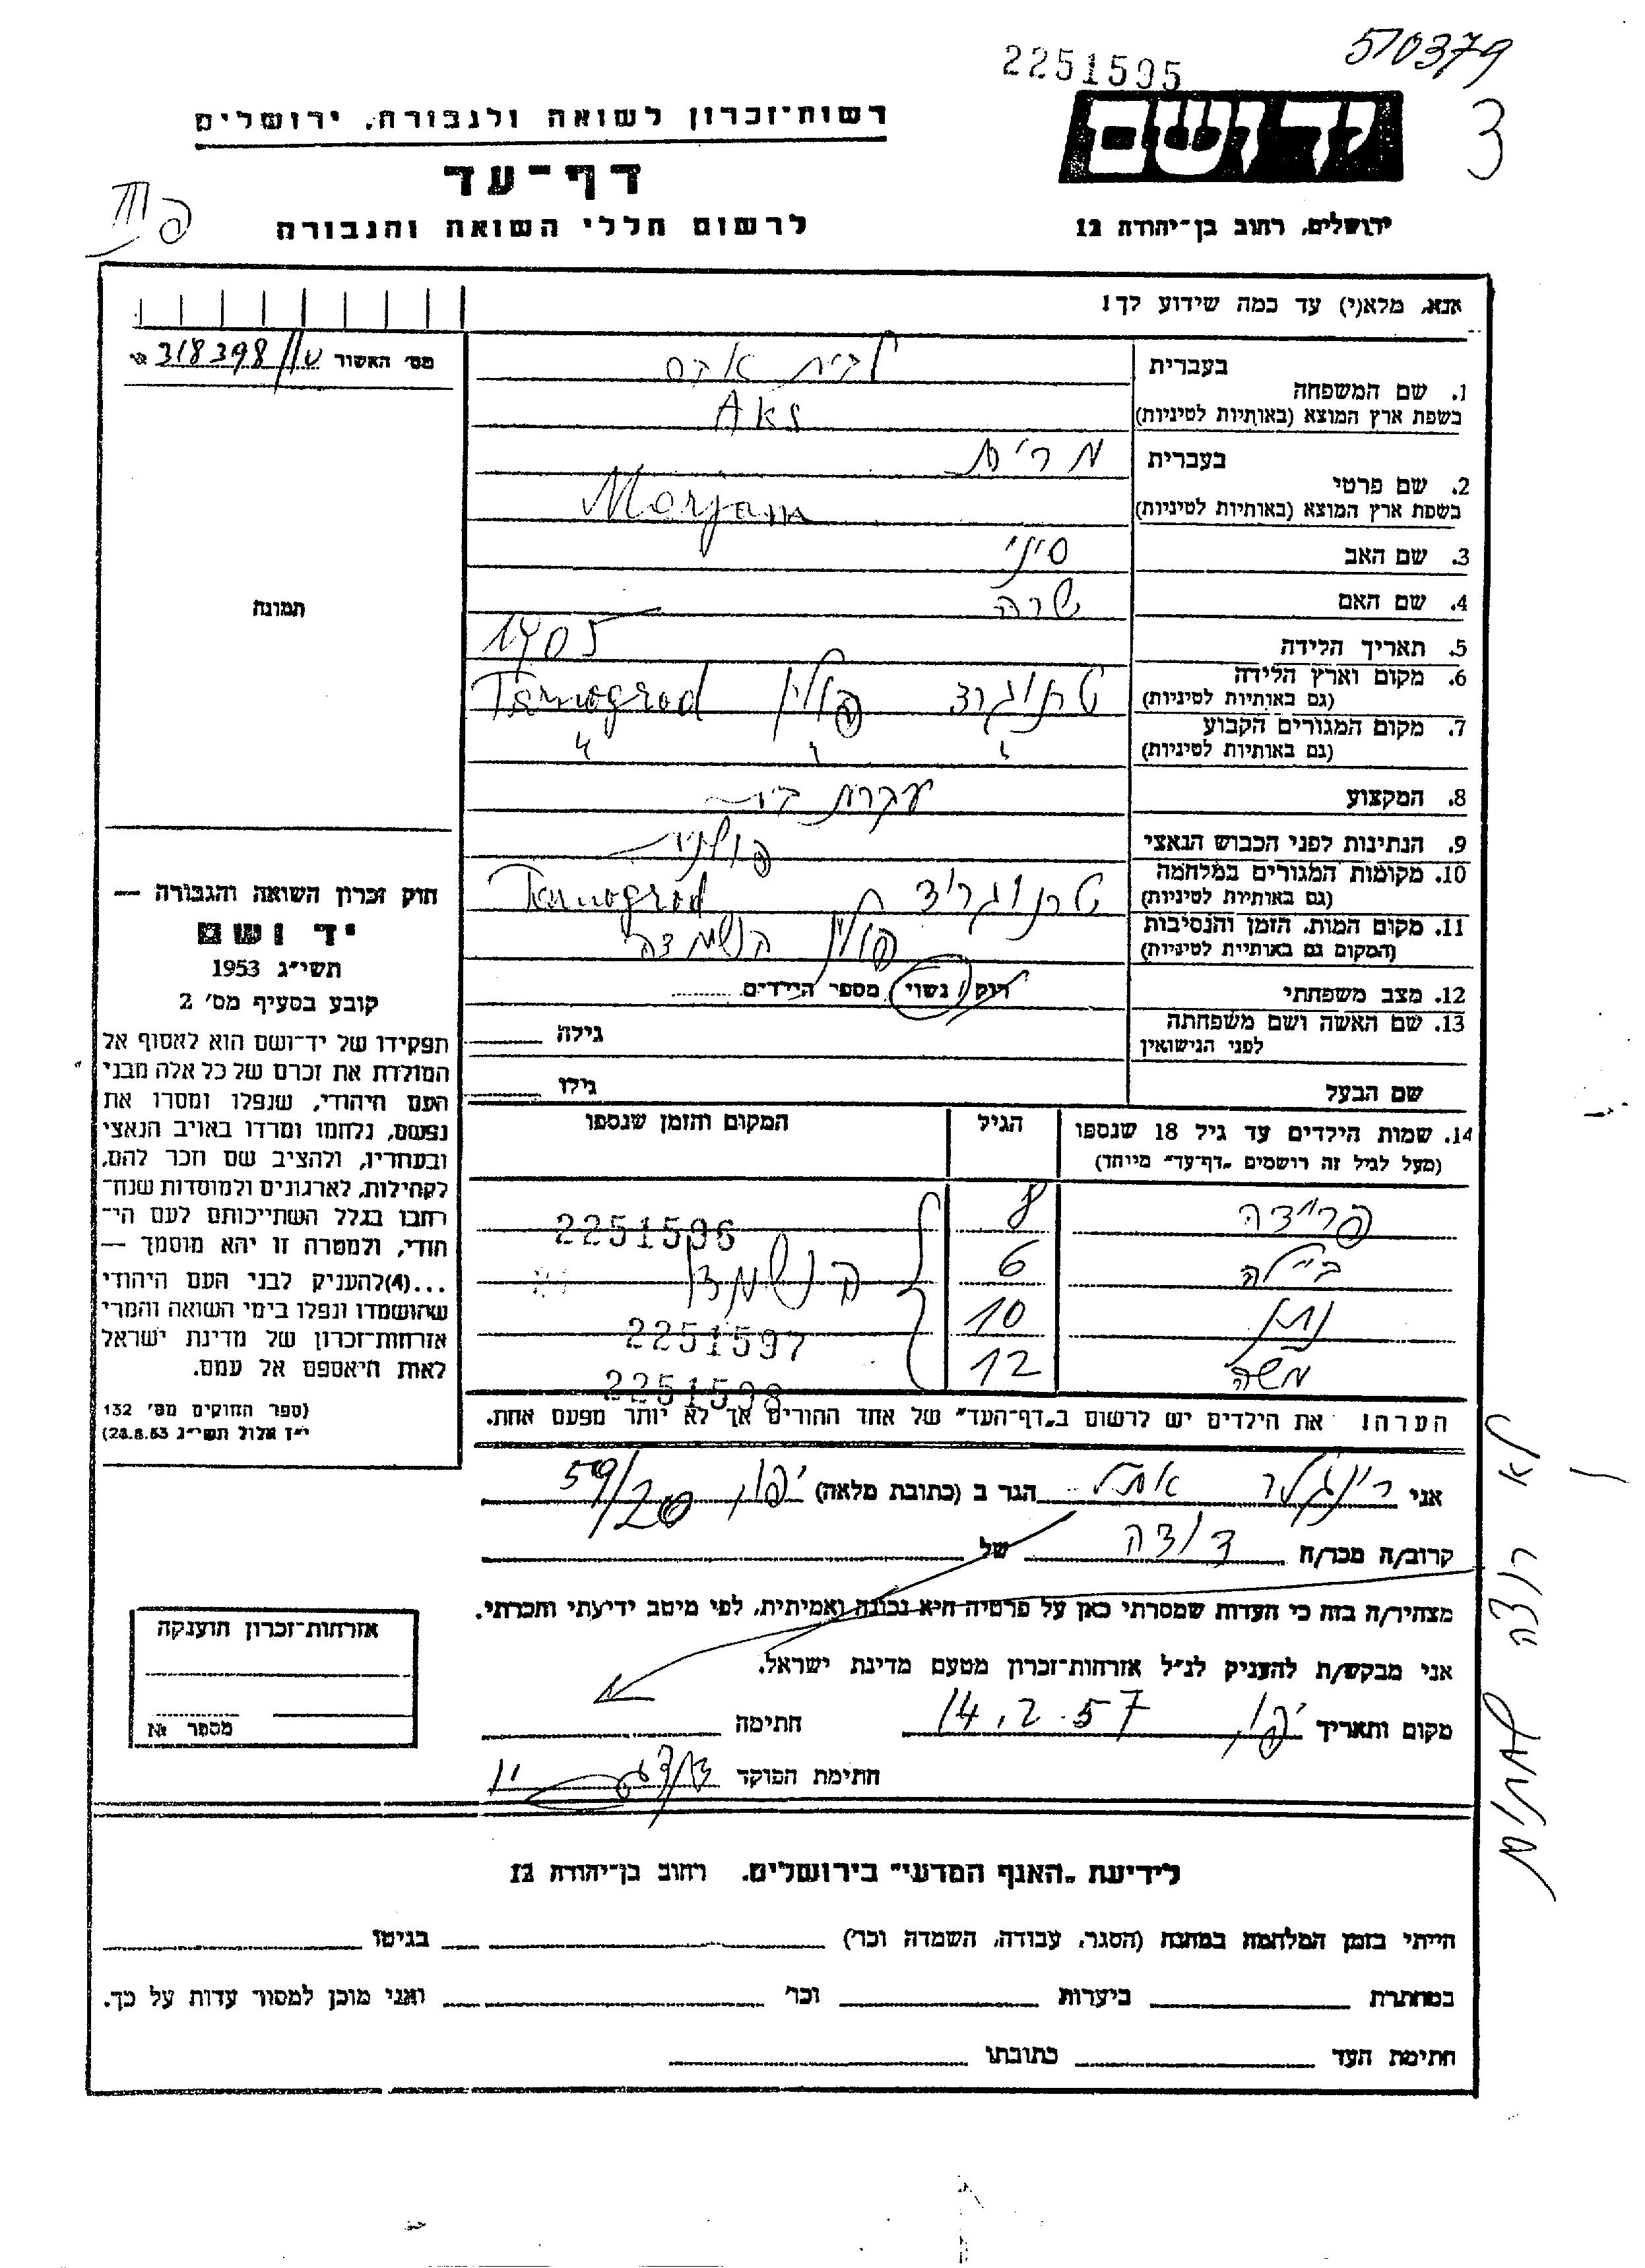 2251595
510379
3
יד ושם
רשות־זכרון לשואה ולגבורה, ירושלים
דף־עד
לרשום חללי השואה והגבורה
ירושלים, רחוב בן־יהודה 12
פ III
אנא, מלא(י) עד כמה שידוע לך!
מס׳ האשור 318398
תמונה
בעברית
1. שם המשפחה
בשפת ארץ המוצא (באותיות לטיניות)
אקס
Aks
בעברית מרים
2. שם פרטי
בשפת ארץ המוצא (באותיות לטיניות) Marjam
3. שם האב סיני
4. שם האם שרה
5. תאריך הלידה 1905
6. מקום וארץ הלידה
(גם באותיות לטיניות) טרנוגרד פולין Tarnograd
7. מקום המגורים הקבוע
(גם באותיות לטיניות) " " "
8. המקצוע עקרת בית
9. הנתינות לפני הכבוש הנאצי פולנית
10. מקומות המגורים במלחמה
(גם באותיות לטיניות) טרנוגרוד Tarnograd
11. מקום המות, הזמן והנסיבות
(המקום גם באותיות לטיניות) פולין הושמדה
12. מצב משפחתי רוק/נשוי מספר הילדים
13. שם האשה ושם משפחתה
לפני הנישואין
גילה
שם הבעל גילו
14. שמות הילדים עד גיל 18 שנספו הגיל המקום והזמן שנספו
(מעל לגיל זה רושמים „דף־עד״ מיוחד)
פרידה 8 2251596
ביילה 6 הושמדו
נתן 10 2251597
משה 12 2251598
הערה! את הילדים יש לרשום ב„דף־העד״ של אחד ההורים אך לא יותר מפעם אחת.
חוק זכרון השואה והגבורה —
יד ושם
תשי״ג 1953
קובע בסעיף מס׳ 2
תפקידו של יד־ושם הוא לאסוף אל
המולדת את זכרם של כל אלה מבני
העם היהודי, שנפלו ומסרו את
נפשם, נלחמו ומרדו באויב הנאצי
ובעוזריו, ולהציב שם וזכר להם,
לקהילות, לארגונים ולמוסדות שנח־
רבו בגלל השתייכותם לעם הי־
הודי, ולמטרה זו יהא מוסמך —
...(4)להעניק לבני העם היהודי
שהושמדו ונפלו בימי השואה והמרי
אזרחות־זכרון של מדינת ישראל
לאות היאספם אל עמם.
(ספר החוקים מס׳ 132
י״ז אלול תשי״ג 28.8.53)
אני רינגלר אתל הגר ב (כתובת מלאה) יפו, 59/20
קרוב/ה מכר/ה דודה של
מצהיר/ה בזה כי העדות שמסרתי כאן על פרטיה היא נכונה ואמיתית, לפי מיטב ידיעתי והכרתי.
אני מבקש/ת להעניק לנ״ל אזרחות־זכרון מטעם מדינת ישראל.
מקום ותאריך יפו, 14.2.57 חתימה
חתימת הפוקד
לא רוצה לחתום
אזרחות־זכרון הוענקה
מספר №
לידיעת „האגף המדעי״ בירושלים, רחוב בן־יהודה 12
הייתי בזמן המלחמה במחנה (הסגר, עבודה, השמדה וכו׳) בגיטו
במחתרת ביערות וכו׳ ואני מוכן למסור עדות על כך.
חתימת העד כתובתו